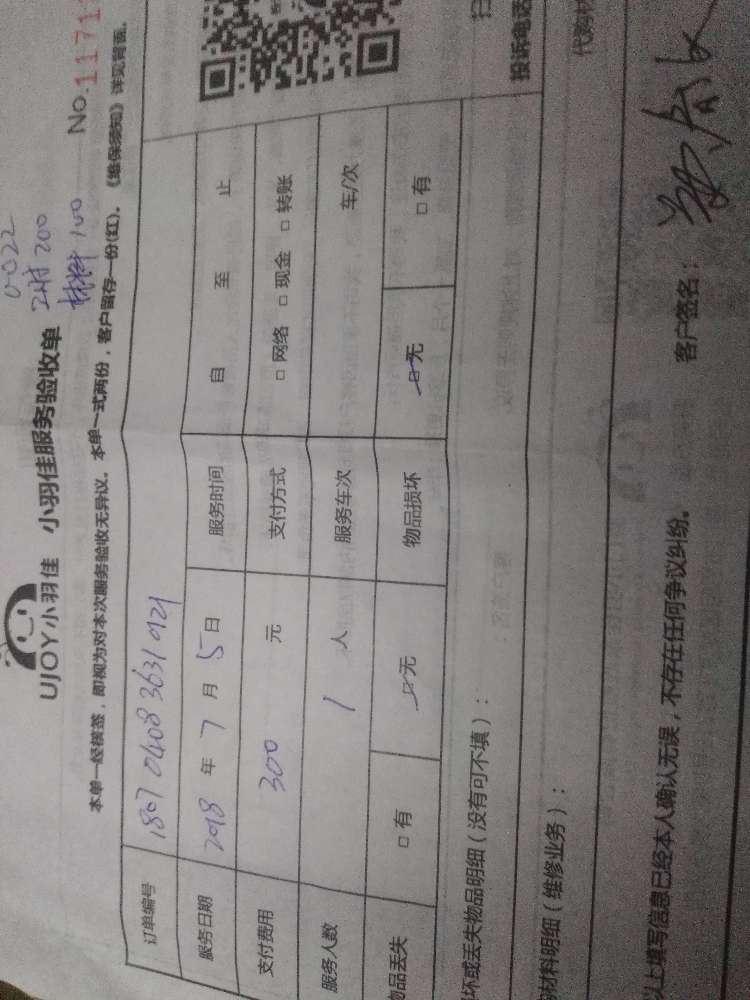 0-022
工时 200
材料 100
UJOY小羽佳 小羽佳服务验收单 No.1171
本单一经核签，即视为对本次服务验收无异议。本单一式两份，客户留存一份(红)。《维保须知》详见背面。
订单编号 1807 0408 3631 0121
服务日期 2018 年 7 月 5 日 服务时间 自 至 止
支付费用 300 元 支付方式 □ 网络 □ 现金 □ 转账
服务人数 1 人 服务车次 车/次
物品丢失 □ 有 □ 无 物品损坏 □ 无 □ 有
坏或丢失物品明细（没有可不填）： 投诉电话
材料明细（维修业务）： 代购材
以上填写信息已经本人确认无误，不存在任何争议纠纷。 客户签名：